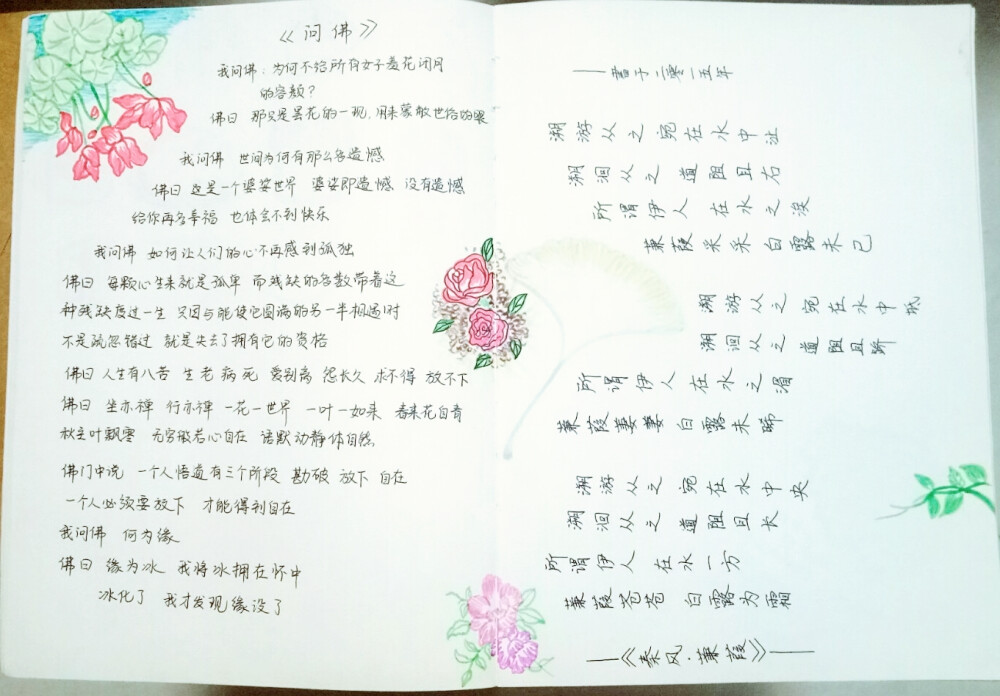 《问佛》
我问佛:为何不给所有女子羞花闭月
的容颜?
佛曰 那只是昙花的一现,用来蒙蔽世俗的眼
我问佛 世间为何有那么多遗憾
佛曰 这是一个婆娑世界 婆娑即遗憾 没有遗憾
给你再多幸福 也体会不到快乐
我问佛 如何让人们的心不再感到孤独
佛曰 每颗心生来就是孤单 而残缺的多数带着这
种残缺度过一生 只因与能使它圆满的另一半相遇时
不是疏忽错过 就是失去了拥有它的资格
佛曰 人生有八苦 生 老 病 死 爱别离 怨长久 求不得 放不下
佛曰 坐亦禅 行亦禅 一花一世界 一叶一如来 春来花自青
秋至叶飘零 无穷般若心自在 语默动静体自然
佛门中说 一个人悟道有三个阶段 勘破 放下 自在
一个人必须要放下 才能得到自在
我问佛 何为缘
佛曰 缘为冰 我将冰拥在怀中
冰化了 我才发现缘没了
——《秦风·蒹葭》——
蒹葭苍苍 白露为霜
所谓伊人 在水一方
溯洄从之 道阻且长
溯游从之 宛在水中央
蒹葭萋萋 白露未晞
所谓伊人 在水之湄
溯洄从之 道阻且跻
溯游从之 宛在水中坻
蒹葭采采 白露未已
所谓伊人 在水之涘
溯洄从之 道阻且右
溯游从之 宛在水中沚
——书于二零一五年